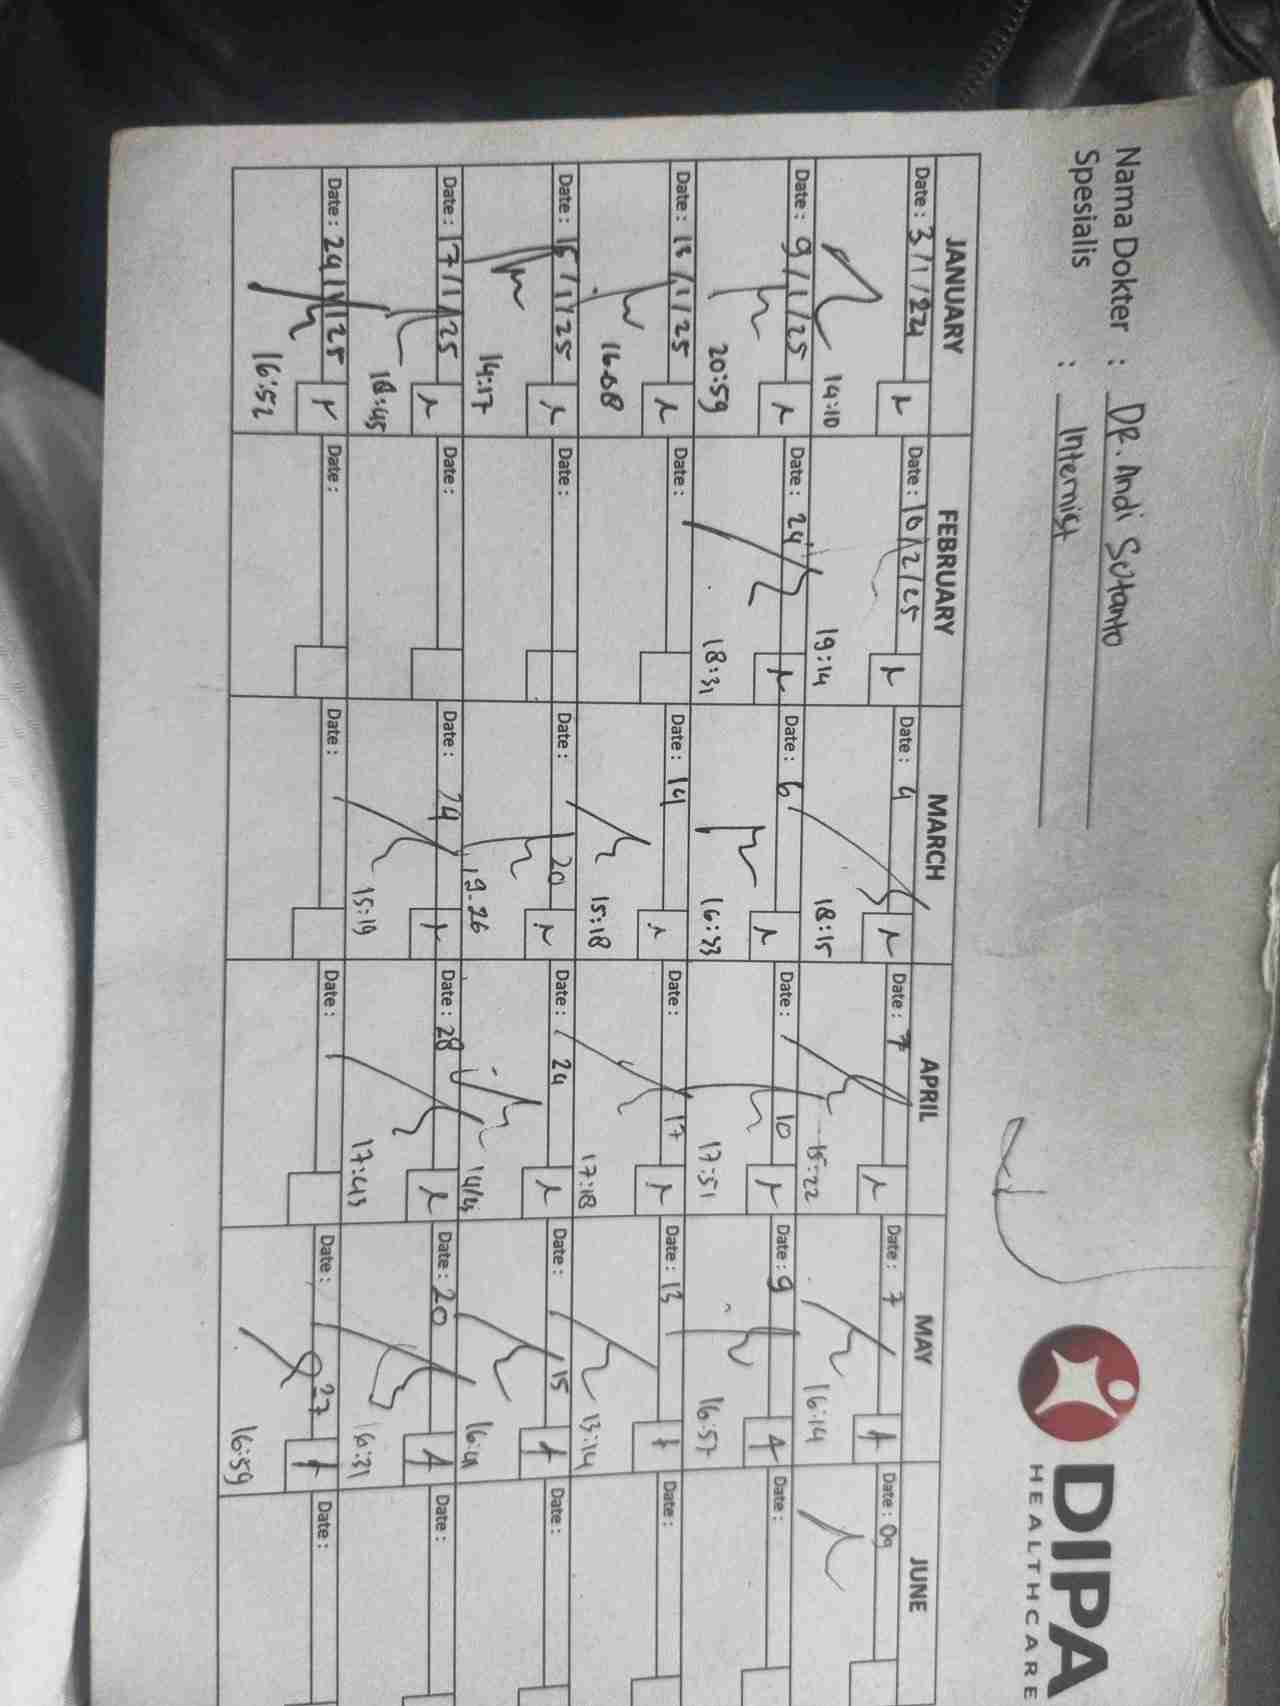 Nama Dokter : DR. Andi Sutanto
Spesialis : Internist
DIPA
HEALTHCARE
JANUARY FEBRUARY MARCH APRIL MAY JUNE
Date : 3/1/24 Date : 10/2/25 Date : 4 Date : 7 Date : 7 Date : 09
14:10 19:14 18:15 15:22 16:14
Date : 9/1/25 Date : 24 Date : 6 Date : 10 Date : 9 Date :
20:59 18:31 16:33 17:51 16:57
Date : 13/1/25 Date : Date : 14 Date : 17 Date : 13 Date :
16.08 15:18 17:18 13:14
Date : 15/1/25 Date : Date : 20 Date : 24 Date : 15 Date :
14:17 19.26 16:41
Date : 17/1/25 Date : Date : 24 Date : 28 Date : 20 Date :
18:45 15:19 17:43 16:31
Date : 24/1/25 Date : Date : Date : Date : 27 Date :
16:52 16:59